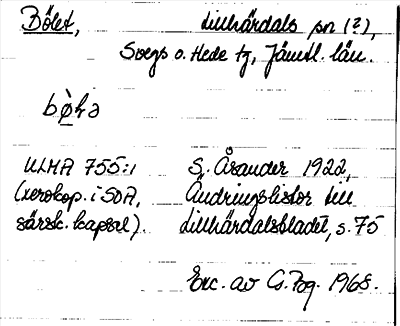 Bölet, Lillhärdals sn (?),
Svegs o. Hede tg, Jämtl. län.
ULMA 755:1 S. Åsander 1922,
(xerokop. i SOA, Ändringslistor till
särsk. kapsel). Lillhärdalsbladet, s. 75
Exc. av G. Pog. 1968.